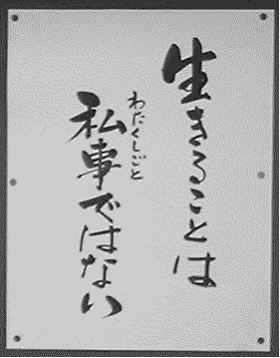 生きることは
わたくしごと
私事ではない